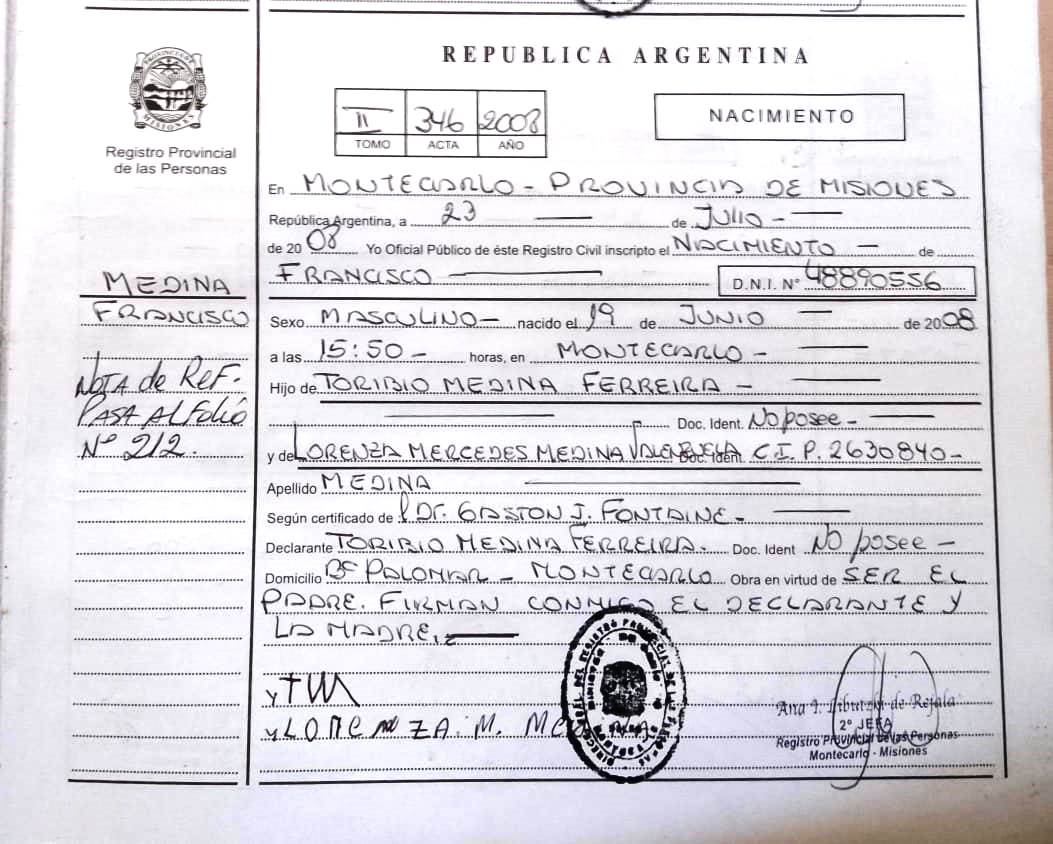 REPUBLICA ARGENTINA
PROVINCIA DE
MISIONES
Registro Provincial
de las Personas
II 346 2008
TOMO ACTA AÑO
NACIMIENTO
En MONTECARLO - PROVINCIA DE MISIONES
República Argentina, a 23 de JULIO -
de 2008 Yo Oficial Público de éste Registro Civil inscripto el NACIMIENTO - de
FRANCISCO D.N.I. N° 48890556
MEDINA
FRANCISCO
Sexo MASCULINO - nacido el 19 de JUNIO de 2008
a las 15:50 - horas, en MONTECARLO -
Hijo de TORIBIO MEDINA FERREIRA -
NOTA de REF.
PASA AL FOLIO
Nº 212.
Doc. Ident. No posee -
y de LORENZA MERCEDES MEDINA VALENZUELA Doc. Ident. C.I.P. 2630840 -
Apellido MEDINA
Según certificado de DR. GASTON J. FONTAINE -
Declarante TORIBIO MEDINA FERREIRA. Doc. Ident No posee -
Domicilio Bº PALOMAR - MONTECARLO Obra en virtud de SER EL
PADRE. FIRMAN CONMIGO EL DECLARANTE Y
LA MADRE.
y
y LORENZA. M. MEDINA
Ana I. de Rejala
2º JEFA
Registro Provincial de las Personas
Montecarlo - Misiones